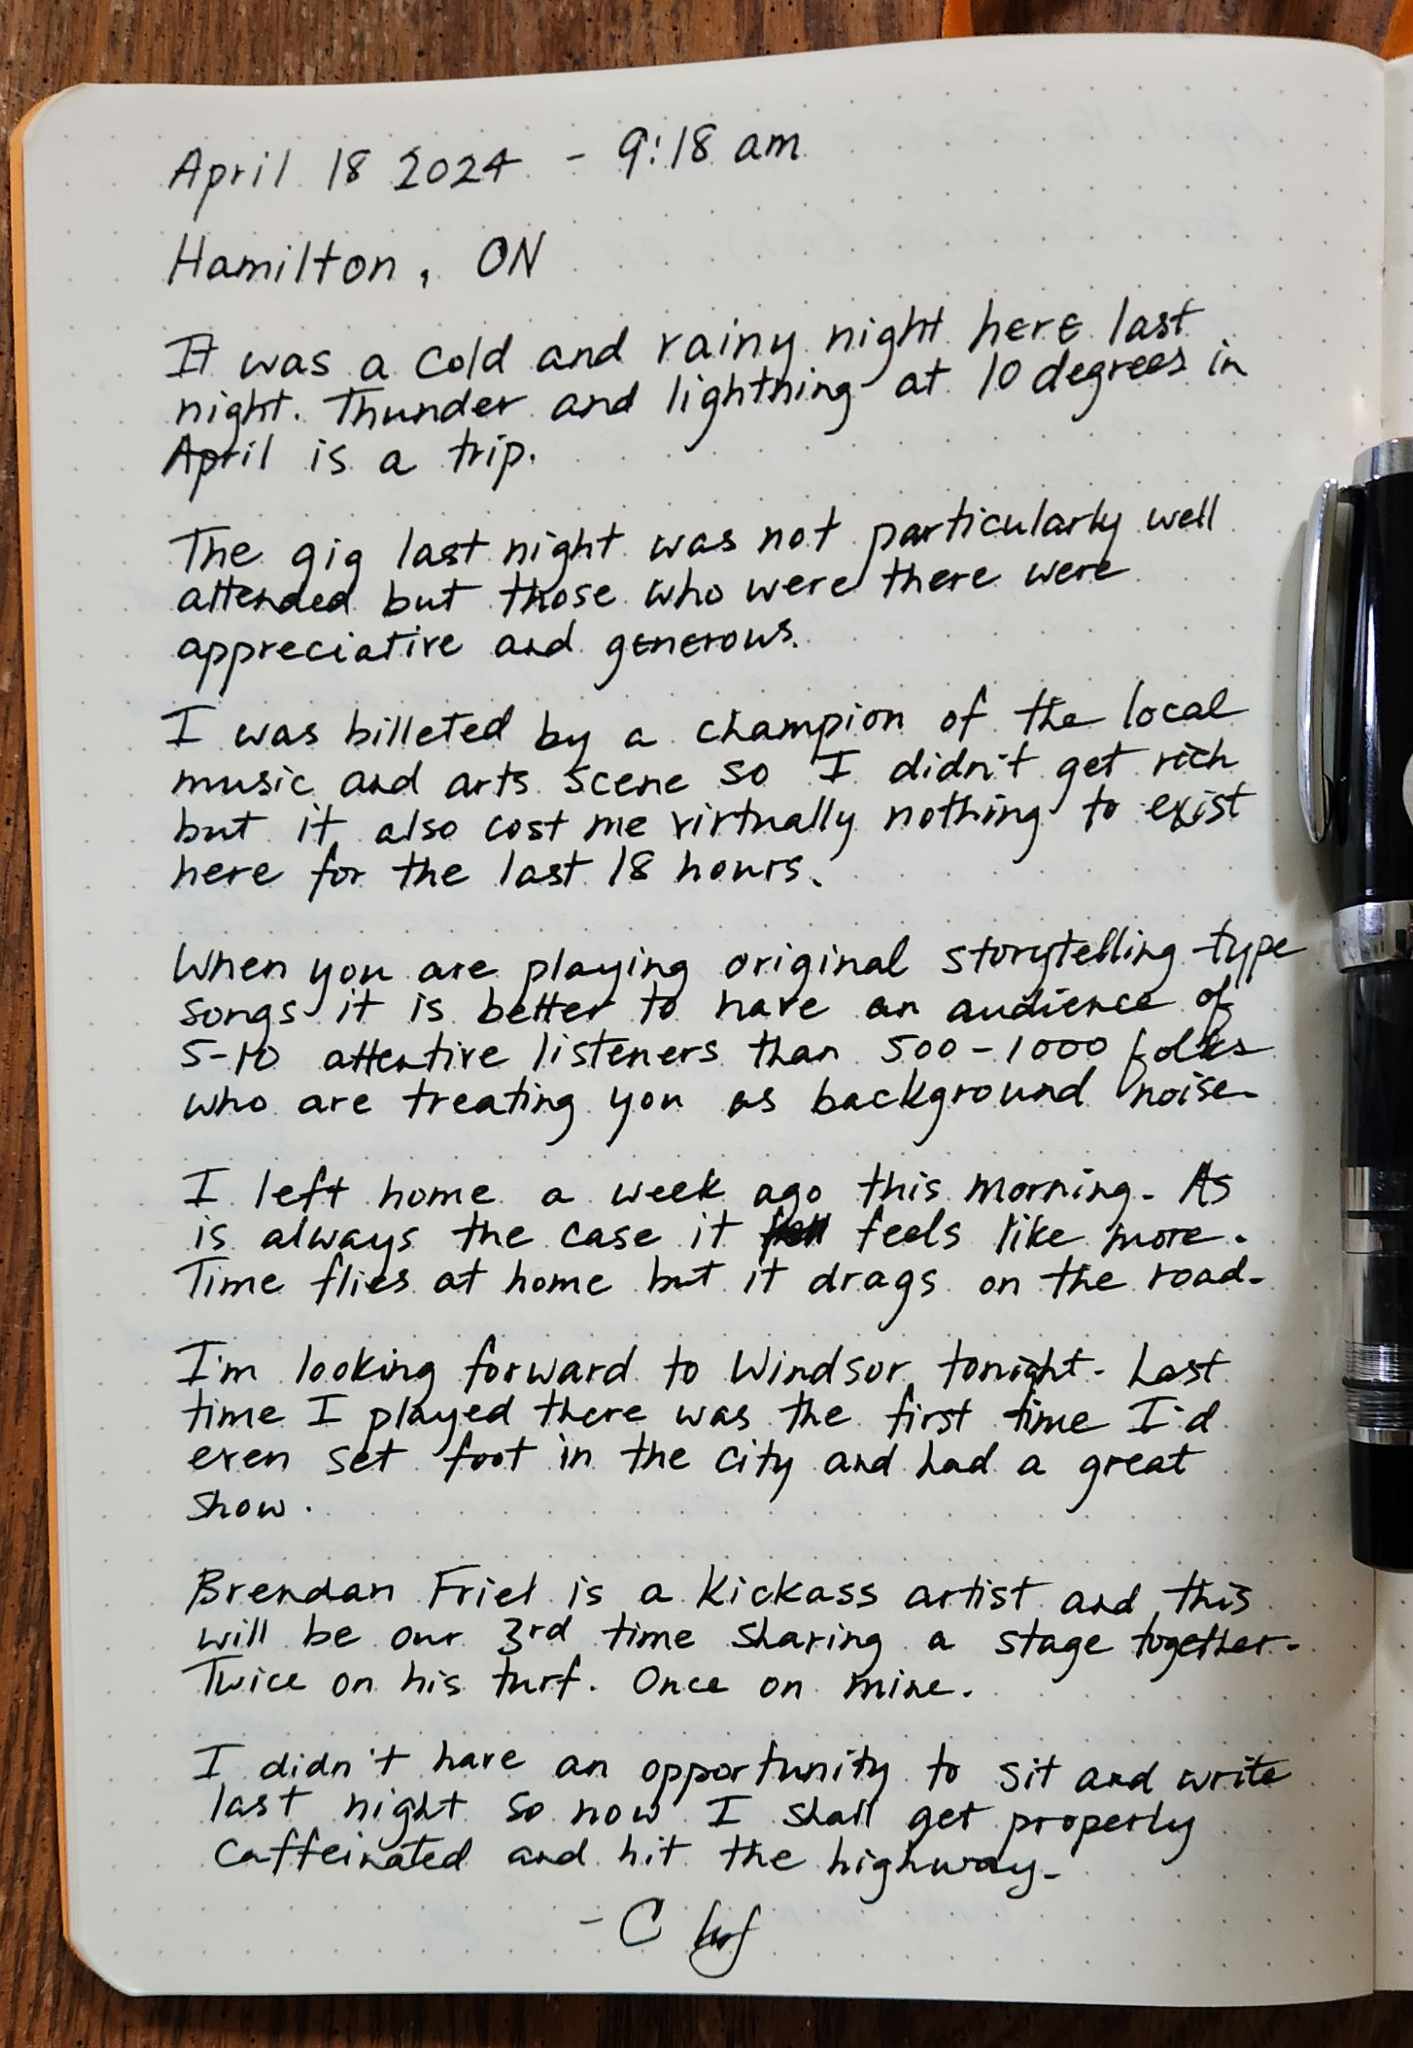 April 18 2024 - 9:18 am
Hamilton, ON
It was a cold and rainy night here last
night. Thunder and lightning at 10 degrees in
April is a trip.
The gig last night was not particularly well
attended but those who were there were
appreciative and generous.
I was billeted by a champion of the local
music and arts scene so I didn't get rich
but it also cost me virtually nothing to exist
here for the last 18 hours.
When you are playing original storytelling type
songs it is better to have an audience of
5-10 attentive listeners than 500-1000 folks
who are treating you as background noise.
I left home a week ago this morning. As
is always the case it feels like more.
Time flies at home but it drags on the road.
I'm looking forward to Windsor tonight. Last
time I played there was the first time I'd
even set foot in the city and had a great
show.
Brendan Friel is a kickass artist and this
will be our 3rd time sharing a stage together.
Twice on his turf. Once on mine.
I didn't have an opportunity to sit and write
last night so now I shall get properly
caffeinated and hit the highway.
- C